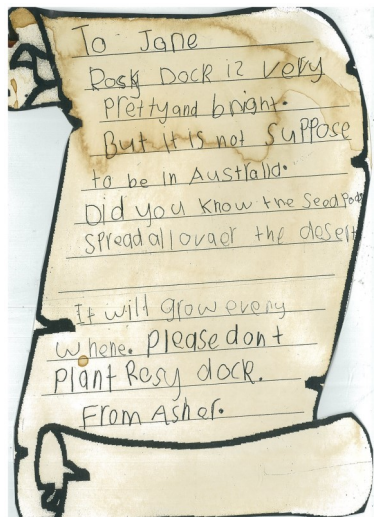 To Jane
Rosy Dock iz very
Prettyand bright.
But it is not Suppose
to be in Australia.
Did you Know the SeedPods
Spread all ovaer the desert
It will grow every
where. Please dont
Plant Rosy dock.
From Asher.